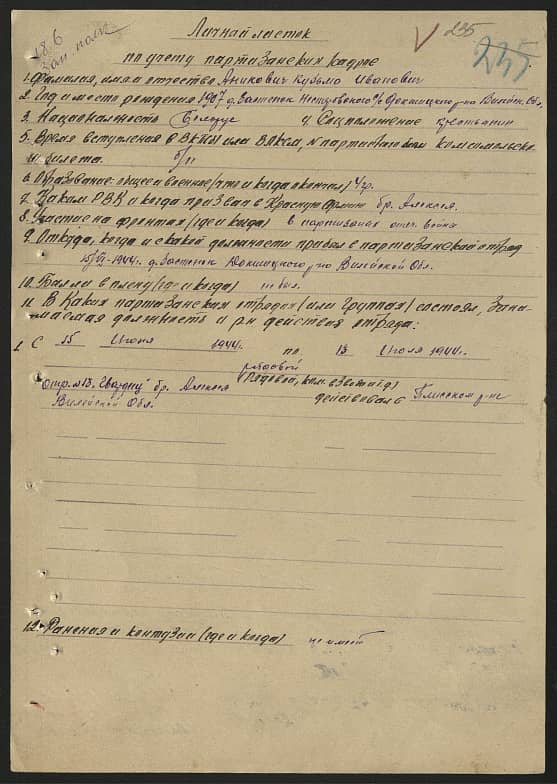 Личной листок
235
18.6
Зап. полк
235
по учету партизанских кадров
1. Фамилия, имя и отчество Аникович Кузьма Иванович
2. Год и место рождения 1907 д. Застенок с/с Докшицкого р-на Вилейск. Обл.
3. Национальность Белорус 4 Соцположение крестьянин
5. Время вступления в ВКП(б) или ВЛКСМ, № партийного или комсомольско-
го билета. б/п
6. Образование: общее и военное (что и когда окончил) 4 гр.
7. Каким РВК и когда призван в Красную Армию бр. Алексея.
8. Участие на фронтах (где и когда) в партизанах отеч. война
9. Откуда, когда и с какой должности прибыл в партизанский отряд
15/VI-1944г. д. Застенок Докшицкого р-на Вилейской Обл.
10. Был ли в плену (где и когда) не был.
11. В каких партизанских отрядах (или группах) состоял, зани-
маемая должность и р-н действия отряда:
1. С 15 Июня 1944г. по 13 Июля 1944г.
рядовой
отр. № 13 "Звезда" бр. Алексея (Рядовой, ком. взвода и т.д.)
Вилейской Обл. действовал в Плисском р-не
12. Ранения и контузии (где и когда) не имеет